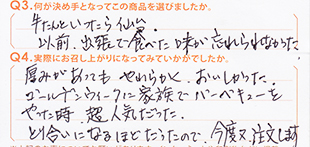 Q3.何が決め手となってこの商品を選びましたか。
牛たんといったら仙台。
以前、出張で食べた味が忘れられなかった
Q4.実際にお召し上がりになってみていかがでしたか。
厚みがあってもやわらかく、おいしかった。
ゴールデンウィークに家族でバーベキューを
やった時、超人気だった。
とり合いになるほどだったので、今度又、注文します